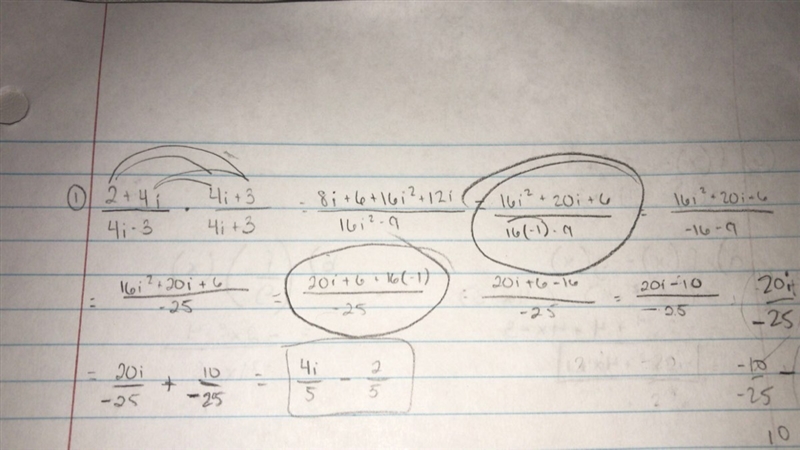 ① (2+4i)/(4i-3) · (4i+3)/(4i+3) = (8i+6+16i²+12i)/(16i²-9) = (16i²+20i+6)/(16(-1)-9) = (16i²+20i+6)/(-16-9)
= (16i²+20i+6)/(-25) = (20i+6+16(-1))/(-25) = (20i+6-16)/(-25) = (20i-10)/(-25) 20i/-25
= 20i/-25 + 10/-25 = 4i/5 - 2/5 -10/-25
10